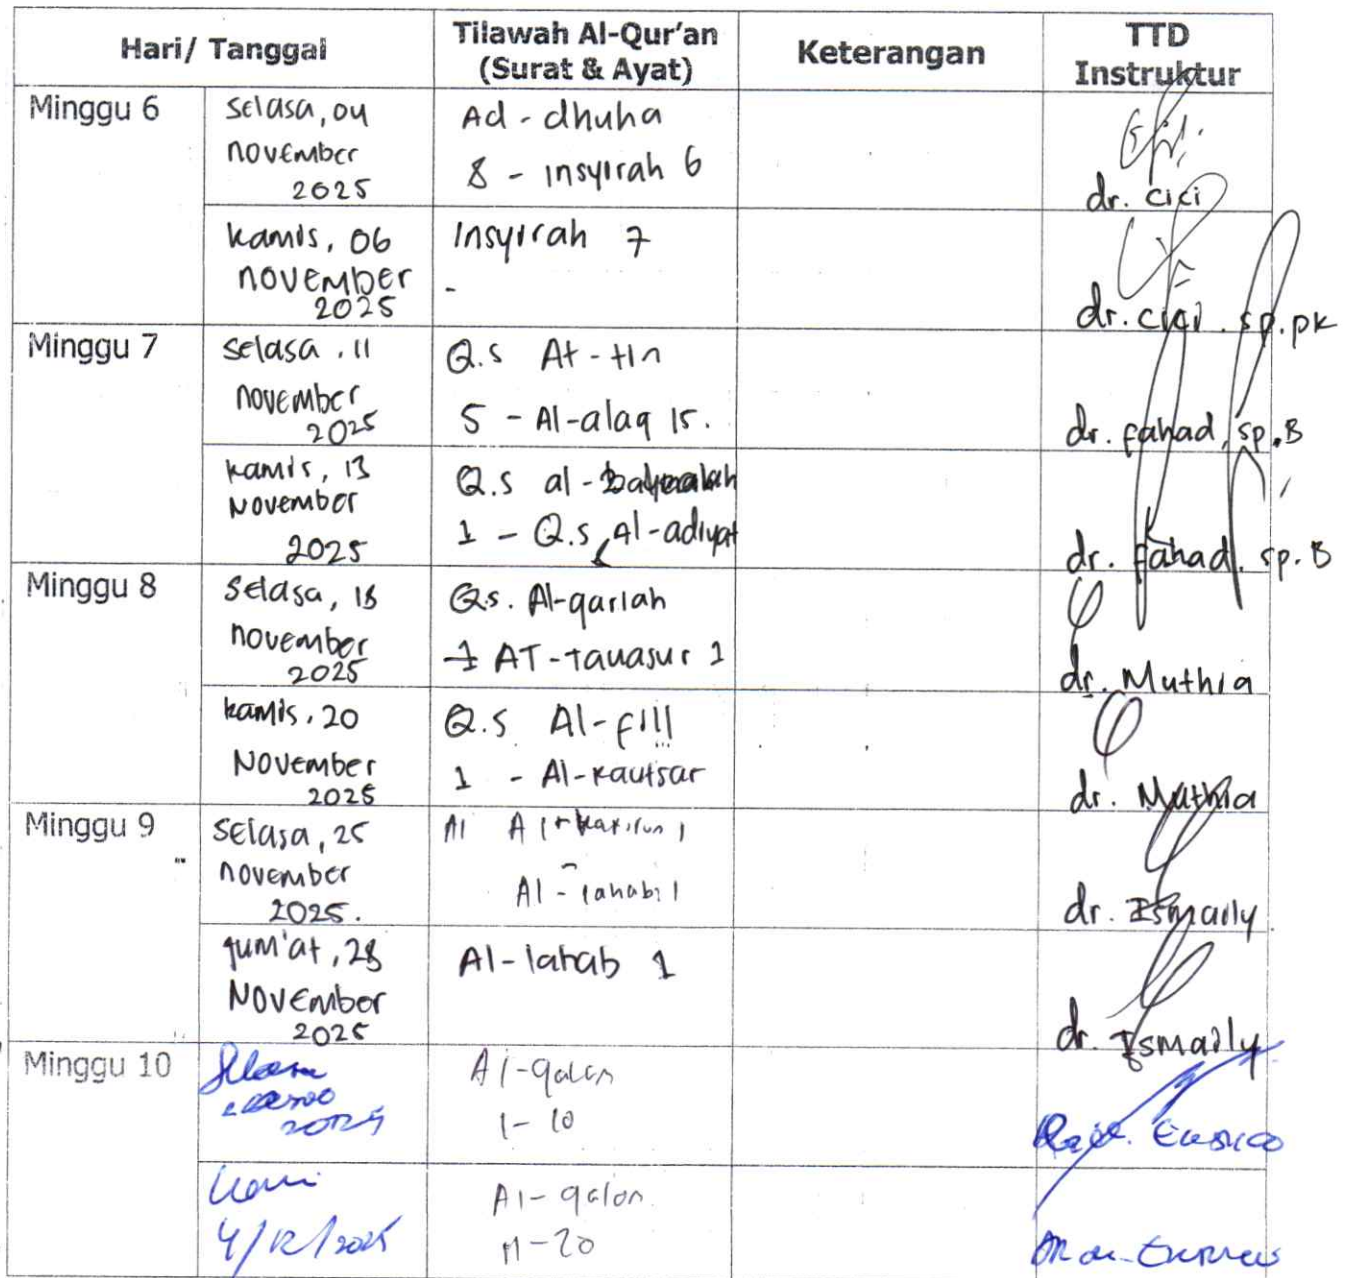 Hari/ Tanggal
Tilawah Al-Qur'an
(Surat & Ayat)
Keterangan
TTD
Instruktur
Minggu 6
selasa, 04
november
2025
Ad - dhuha
8 - insyirah 6
dr. cici
kamis, 06
november
2025
Insyirah 7
-
dr. cici. sp.pk
Minggu 7
selasa, 11
november
2025
Q.s At - tin
5 - Al-alaq 15.
dr. fahad, sp.B
kamis, 13
November
2025
Q.s al-
1 - Q.s Al-adiyat
dr. fahad. sp.B
Minggu 8
selasa, 18
november
2025
Qs. Al-qariah
1 AT-tauasur 1
dr. Muthia
kamis, 20
November
2025
Q.s Al-fiil
1 - Al-kautsar
dr. Muthia
Minggu 9
selasa, 25
november
2025.
Al
Al - lahab 1
dr. Ismaily
jum'at, 28
November
2025
Al-lahab 1
dr. Ismaily
Minggu 10
Selasa
2025
Al-qalam
1-10
Kami
4/12/2025
Al-qalam
11-20